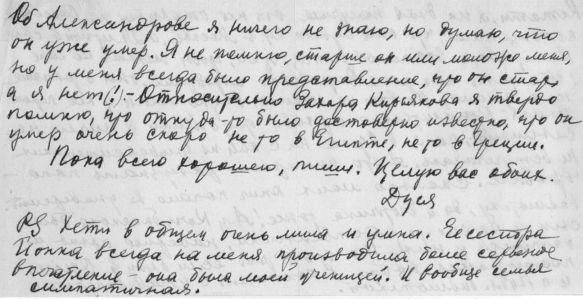 Об Александрове я ничего не знаю, но думаю, что
он уже умер. Я не помню, старше он или моложе меня,
но у меня всегда было представление, что он стар,
а я нет(!). – Относительно Захара Кирьякова я твердо
помню, что откуда-то было достоверно известно, что он
умер очень скоро не то в Египте, не то в Греции.
Пока всего хорошего, пиши. Целую вас обоих.
Дуся
PS Хети в общем очень мила и умна. Ее сестра
всегда на меня производила более серьезное
впечатление – она была моей ученицей. И вообще семья
симпатичная.